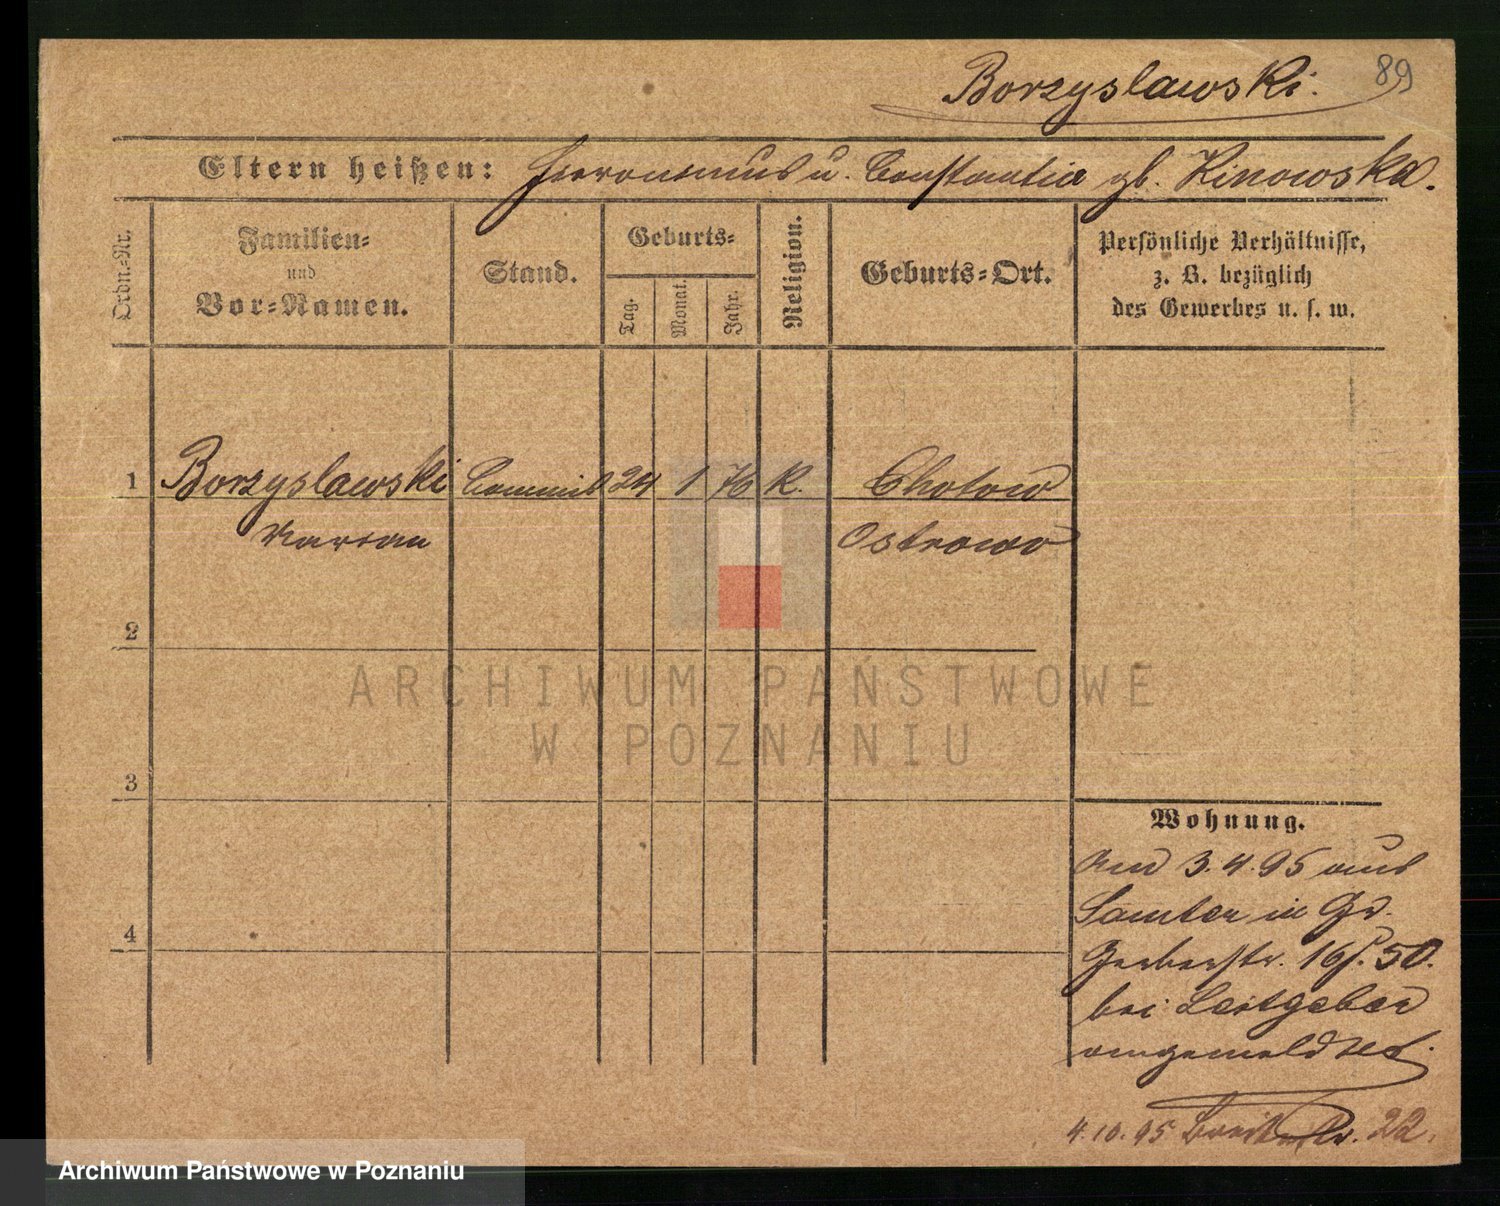 Borzyslawski.
89
Eltern heißen: Hieronimus u. Constantia gb. Kinowska.
Ordn.-Nr.
Familien-
und
Vor-Namen.
Stand.
Geburts-
Tag.
Monat.
Jahr.
Religion.
Geburts-Ort.
Persönliche Verhältnisse,
z. B. bezüglich
des Gewerbes u. s. w.
1 Borzyslawski Commis 24 1 76 K. Chotow
Marian Ostrowo
2
ARCHIWUM PAŃSTWOWE
W POZNANIU
3
Wohnung.
Am 3.4.95 aus
Samter in Gr.
Gerberstr. 16 50.
bei Leitgeber
angemeldet.
4
4.10.95 Breitestr. 22.
Archiwum Państwowe w Poznaniu